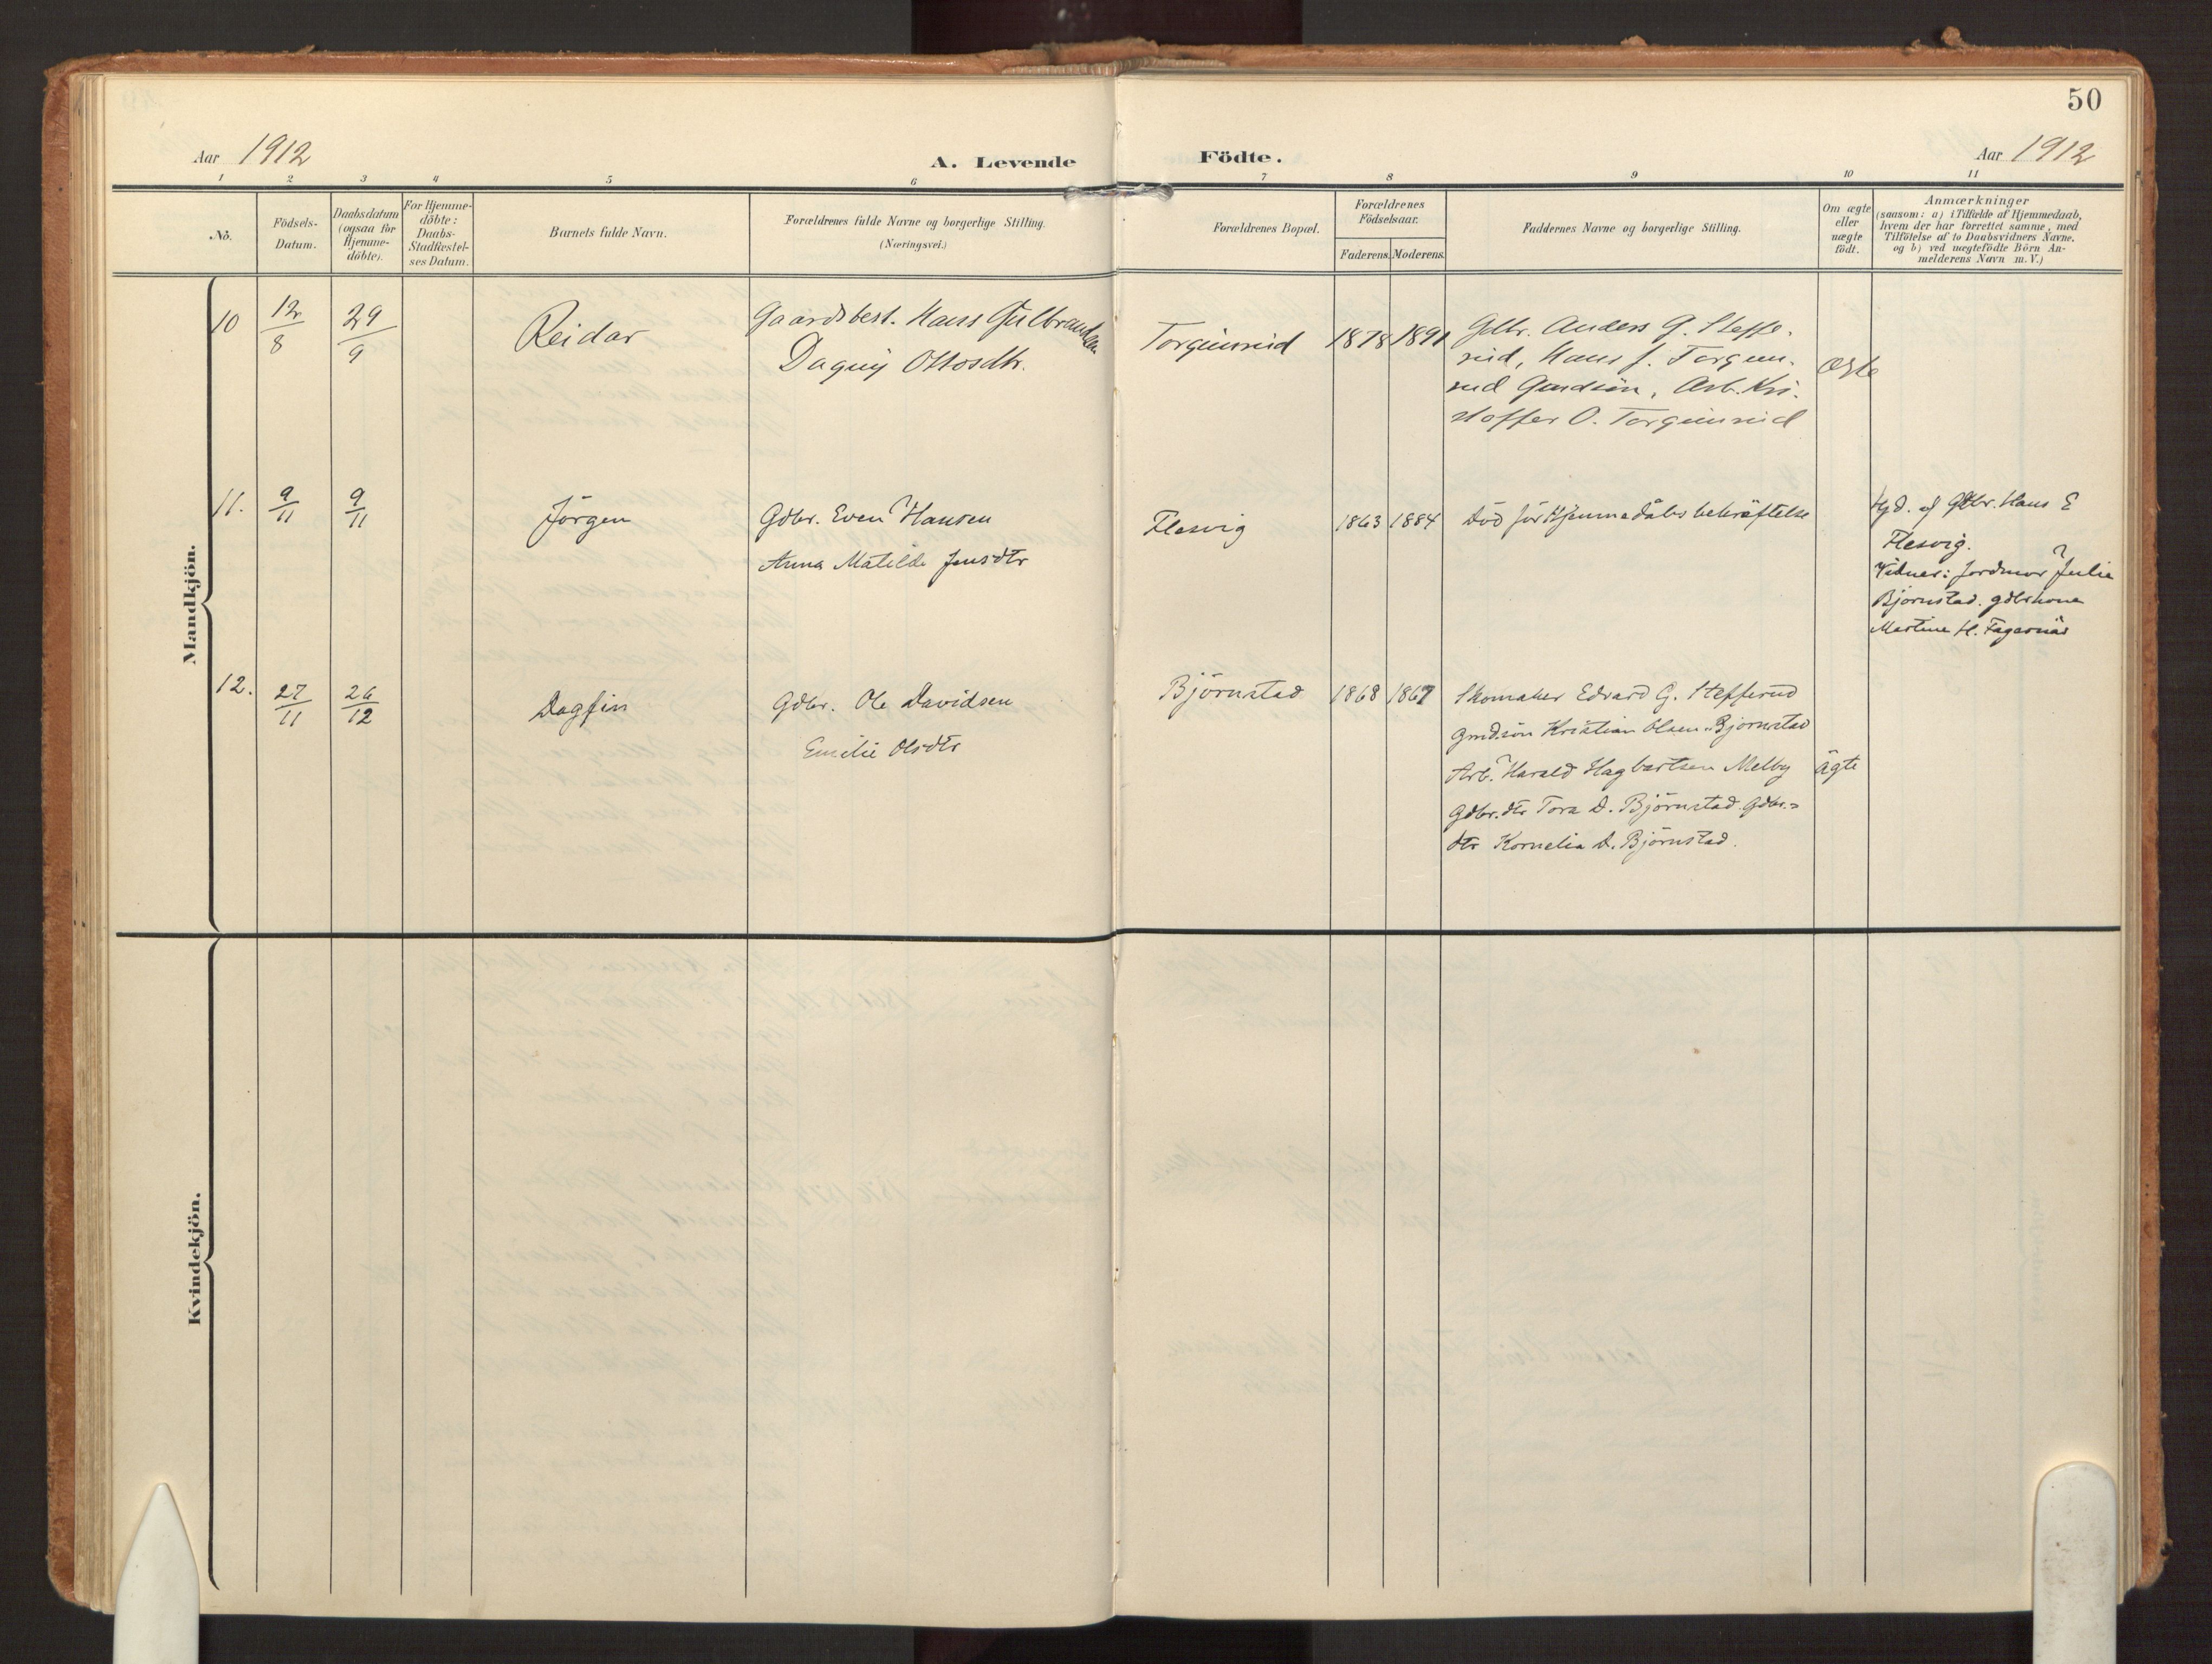 50
Aar 1912
A. Levende Födte.
Aar 1912
1 2 3 4 5 6 7 8 9 10 11
No.
Födsels-
Datum.
Daabsdatum
(ogsaa for
Hjemme-
döbte).
For Hjemme-
döbte:
Daabs-
Stadfæstel-
ses Datum.
Barnets fulde Navn.
Forældrenes fulde Navne og borgerlige Stilling.
(Næringsvei.)
Forældrenes Bopæl.
Forældrenes
Födselsaar.
Faderens. Moderens.
Faddernes Navne og borgerlige Stilling.
Om ægte
eller
uægte
födt.
Anmærkninger
(saasom: a) i Tilfælde af Hjemmedaab,
hvem der har forrettet samme, med
Tilföielse af to Daabsvidners Navne,
og b) ved uægtefödte Börn An-
melderens Navn m. V.)
Mandkjön.
10 12/8 29/9 Reidar
Gaardsbest. Hans Gulbrandsen
Dagny Ottosdtr.
Torgunrud 1878 1891
Gdbr. Anders G. Steffe-
rud, Hans J. Torgun-
rud Gaardsön, Arb. Kri-
stoffer O. Torgunrud
ægte
11. 9/11 9/11 Jörgen
Gdbr. Even Hansen
Anna Matilde Jensdtr
Flesvig 1863 1884
Död för Hjemmedåbs bekräftelse
Hjd. af Gdbr. Hans E
Flesvig.
Vidner: Jordmor Julie
Bjørnstad. gdbrkone
Martine H. Fagernäs
12. 27/11 26/12 Dagfin
Gdbr. Ole Davidsen
Emilie Olsdtr
Björnstad 1868 1867
Skomaker Edvard G. Stefferud
Gmdsön Kristian Olsen Bjørnstad
Arb. Harald Hagbartsen Melby
Gdbr.dtr Tora D. Björnstad. Gdbr.-
dtr Kornelia D. Björnstad.
ägte
Kvindekjön.